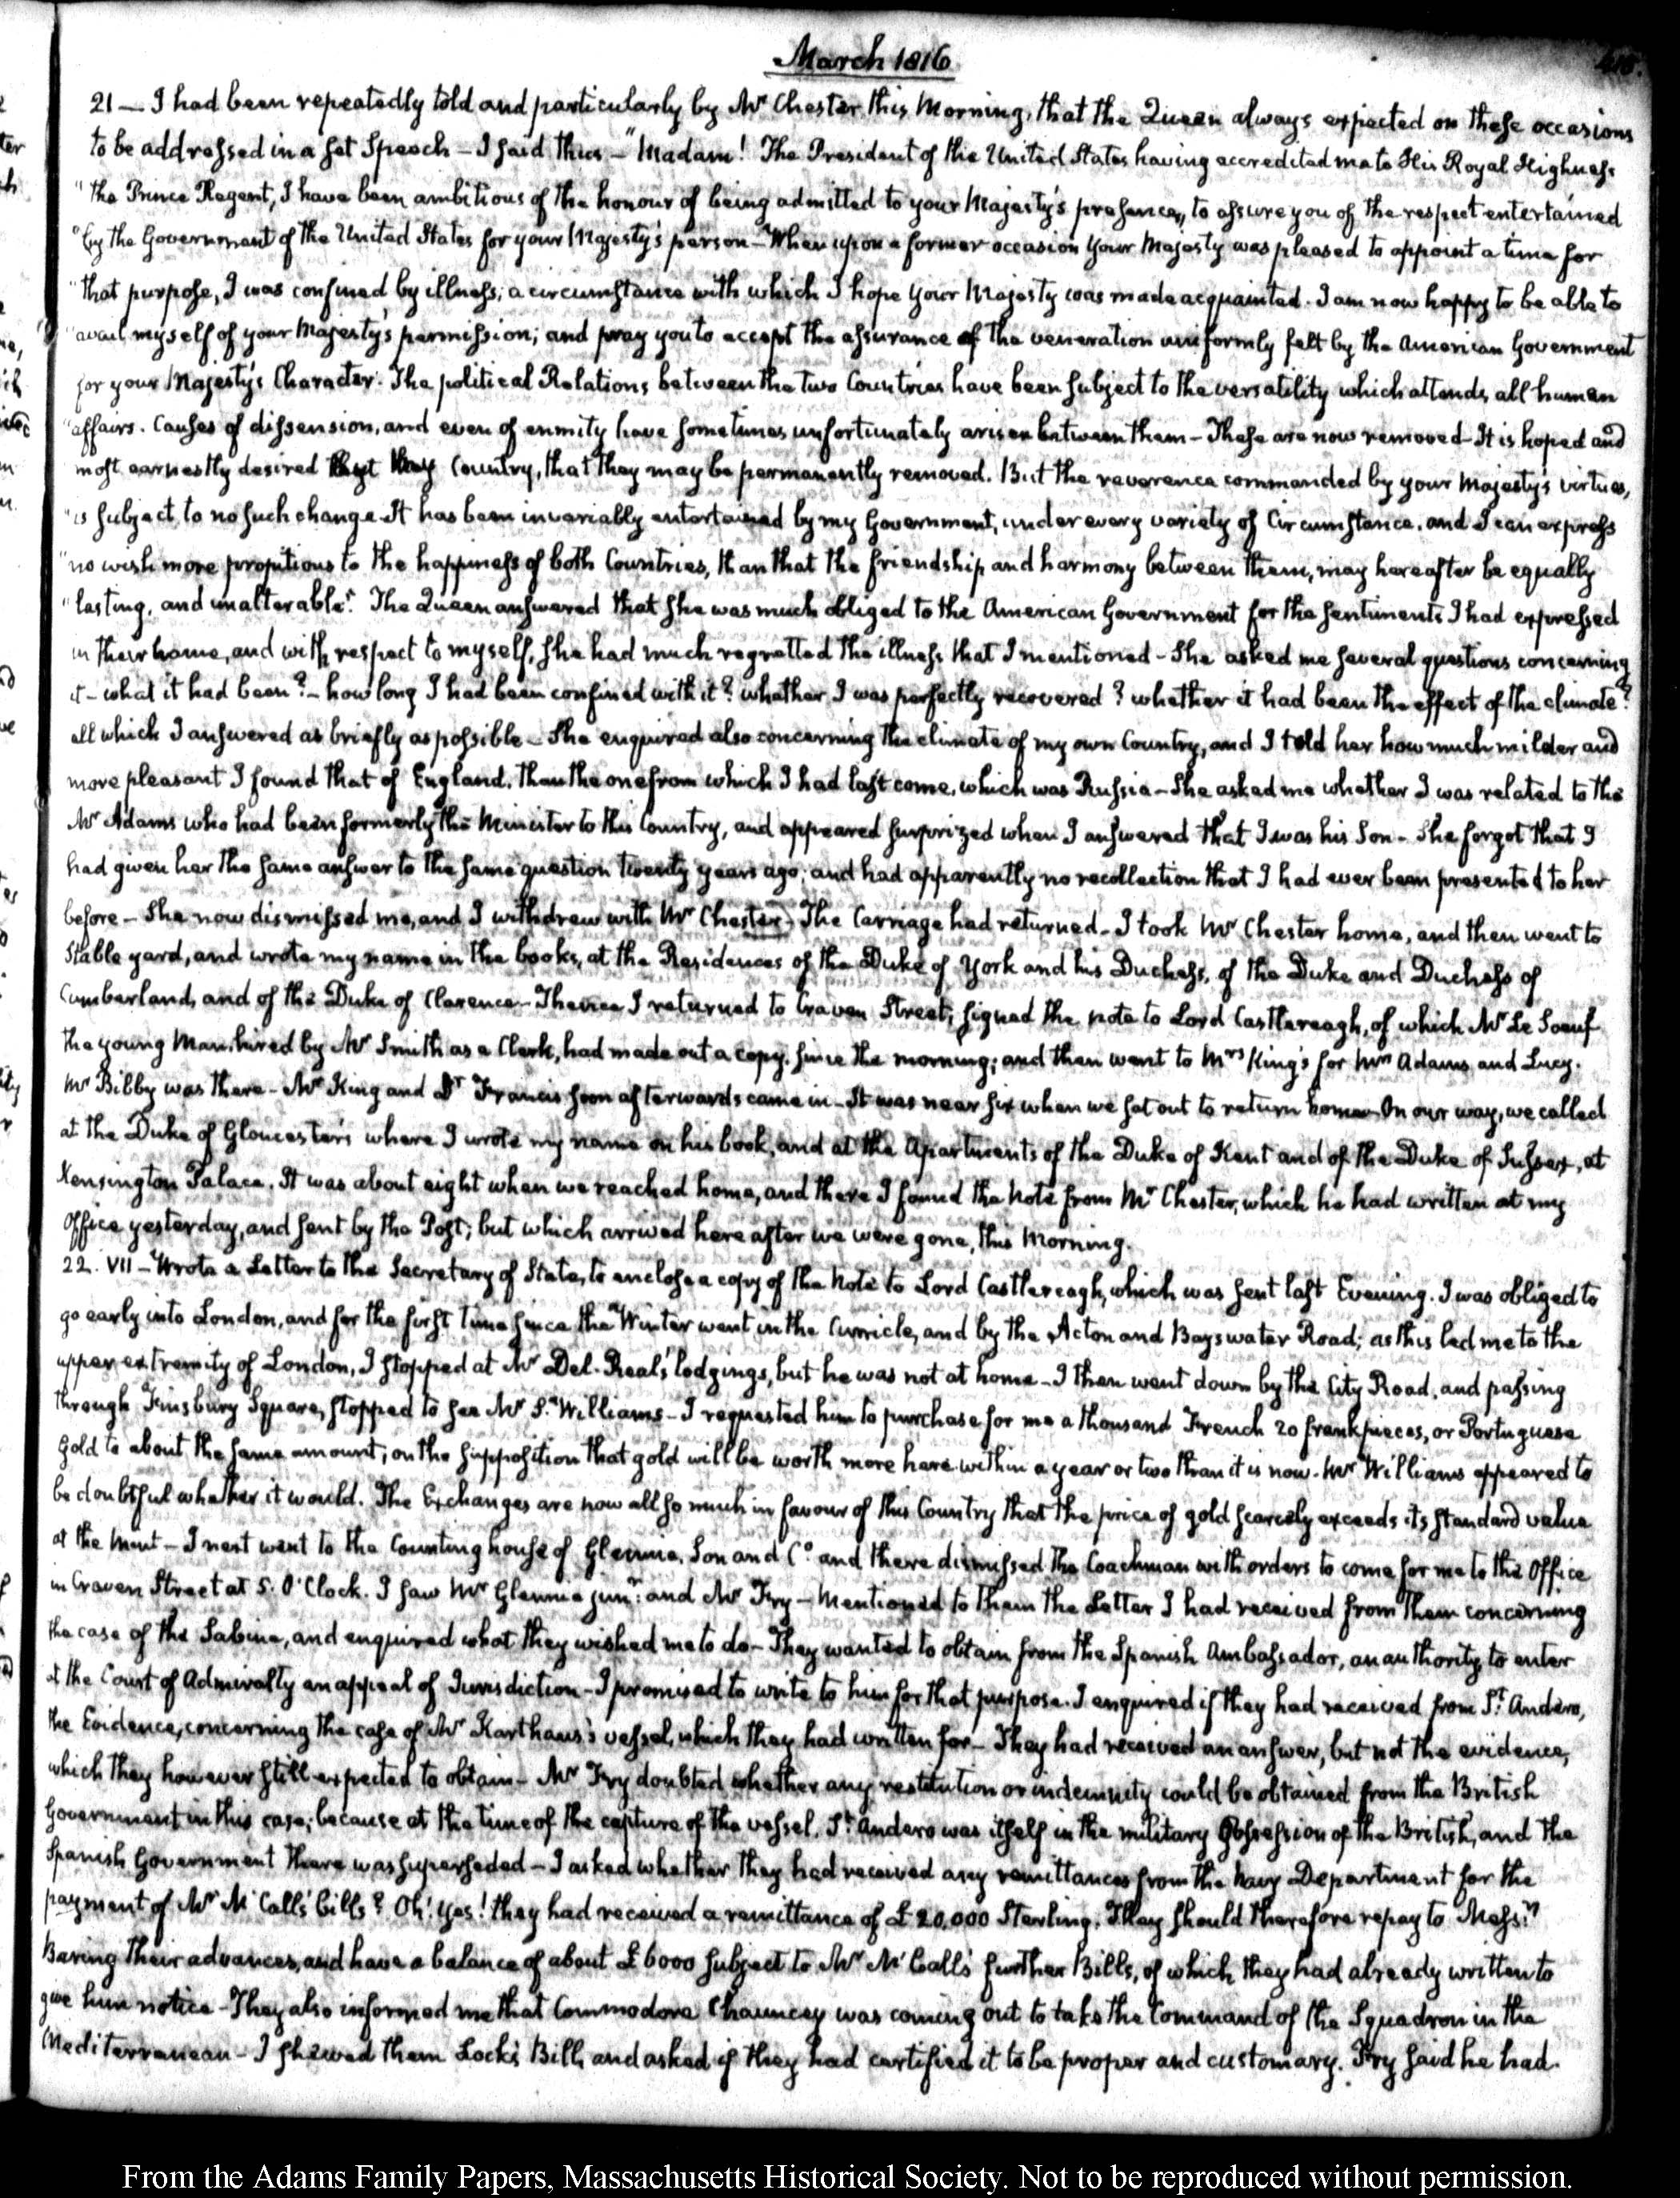 March 1816
21 — I had been repeatedly told and particularly by Mr. Chester this Morning, that the Queen always expected on these occasions
to be addressed in a set Speech — I said thus — "Madam! The President of the United States having accredited me to His Royal Highness
"the Prince Regent, I have been ambitious of the honour of being admitted to your Majesty's presence, to assure you of the respect entertained
"by the Government of the United States for your Majesty's person — When upon a former occasion your Majesty was pleased to appoint a time for
"that purpose, I was confined by illness, a circumstance with which I hope your Majesty was made acquainted. I am now happy to be able to
"avail myself of your Majesty's permission; and pray you to accept the assurance of the veneration uniformly felt by the American Government
for your Majesty's Character. The political Relations between the two Countries have been subject to the versatility which attends all human
"affairs. Causes of dissension, and even of enmity have sometimes unfortunately arisen between them — These are now removed — It is hoped and
most earnestly desired Country, that they may be permanently removed. But the reverence commanded by your Majesty's virtues,
"is subject to no such change. It has been invariably entertained by my Government, under every variety of Circumstance, and I can express
"no wish more propitious to the happiness of both Countries, than that the friendship and harmony between them, may hereafter be equally
"lasting, and unalterable". The Queen answered that she was much obliged to the American Government for the sentiments I had expressed
in their name, and with respect to myself, she had much regretted the illness that I mentioned — She asked me several questions concerning
it — what it had been? — how long I had been confined with it? whether I was perfectly recovered? whether it had been the effect of the climate?
all which I answered as briefly as possible — She enquired also concerning the climate of my own Country, and I told her how much milder and
more pleasant I found that of England, than the one from which I had last come, which was Russia — She asked me whether I was related to the
Mr Adams who had been formerly the Minister to this Country, and appeared surprized when I answered that I was his Son — She forgot that I
had given her the same answer to the same question twenty years ago; and had apparently no recollection that I had ever been presented to her
before — She now dismissed me, and I withdrew with Mr Chester — The Carriage had returned — I took Mr Chester home, and then went to
Stable yard, and wrote my name in the books, at the Residences of the Duke of York and his Duchess, of the Duke and Duchess of
Cumberland, and of the Duke of Clarence — Thence I returned to Craven Street; signed the note to Lord Castlereagh, of which Mr Le Soeuf
the young Man hired by Mr Smith as a Clerk, had made out a copy since the morning; and then went to Mrs King's for Mrs Adams and Lucy.
Mr Bibby was there — Mr King and Dr Francis soon afterwards came in — It was near six when we set out to return home — On our way, we called
at the Duke of Gloucester's where I wrote my name on his book, and at the Apartments of the Duke of Kent and of the Duke of Sussex, at
Kensington Palace. It was about eight when we reached home, and there I found the Note from Mr Chester, which he had written at my
Office yesterday, and sent by the Post; but which arrived here after we were gone, this Morning.
22. VII — Wrote a Letter to the Secretary of State, to enclose a copy of the Note to Lord Castlereagh, which was sent last Evening. I was obliged to
go early into London, and for the first time since the Winter went in the Curricle, and by the Acton and Bayswater Road; as this led me to the
upper extremity of London, I stopped at Mr Del-Real's lodgings, but he was not at home — I then went down by the City Road, and passing
through Finsbury Square, stopped to see Mr S. Williams — I requested him to purchase for me a thousand French 20 frank pieces, or Portuguese
Gold to about the same amount; on the supposition that gold will be worth more here within a year or two than it is now. Mr Williams appeared to
be doubtful whether it would. The Exchanges are now all so much in favour of this Country that the price of gold scarcely exceeds its standard value
at the Mint — I next went to the Counting house of Glennie, Son and Co. and there dismissed the Coachman with orders to come for me to the Office
in Craven Street at 5. O'Clock. I saw Mr Glennie junr. and Mr Fry — Mentioned to them the Letter I had received from them concerning
the case of the Sabine, and enquired what they wished me to do — They wanted to obtain from the Spanish Ambassador, an authority to enter
at the Court of Admiralty an appeal of Jurisdiction — I promised to write to him for that purpose. I enquired if they had received from St. Andero,
the Evidence, concerning the case of Mr Karthaus's vessel, which they had written for — They had received an answer, but not the evidence,
which they however still expected to obtain — Mr Fry doubted whether any restitution or indemnity could be obtained from the British
Government in this case; because at the time of the capture of the vessel, St. Andero was itself in the military possession of the British, and the
Spanish Government there was superseded — I asked whether they had received any remittances from the Navy Department for the
payment of Mr McCall's bills? Oh! yes! they had received a remittance of £20,000 Sterling. They should therefore repay to Messrs.
Baring their advances, and have a balance of about £6000 subject to Mr McCall's further Bills, of which they had already written to
give him notice — They also informed me that Commodore Chauncey was coming out to take the Command of the Squadron in the
Mediterranean — I shewed them Lock's Bill, and asked if they had certified it to be proper and customary. Fry said he had.
From the Adams Family Papers, Massachusetts Historical Society. Not to be reproduced without permission.